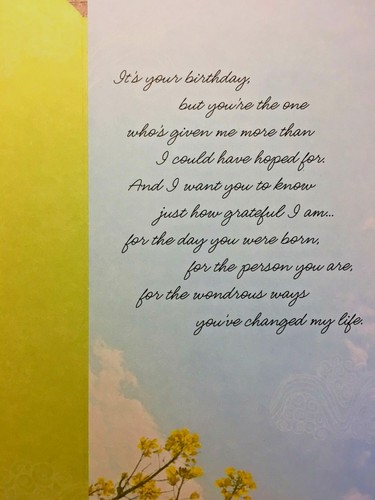 It's your birthday,
but you're the one
who's given me more than
I could have hoped for.
And I want you to know
just how grateful I am...
for the day you were born,
for the person you are,
for the wondrous ways
you've changed my life.